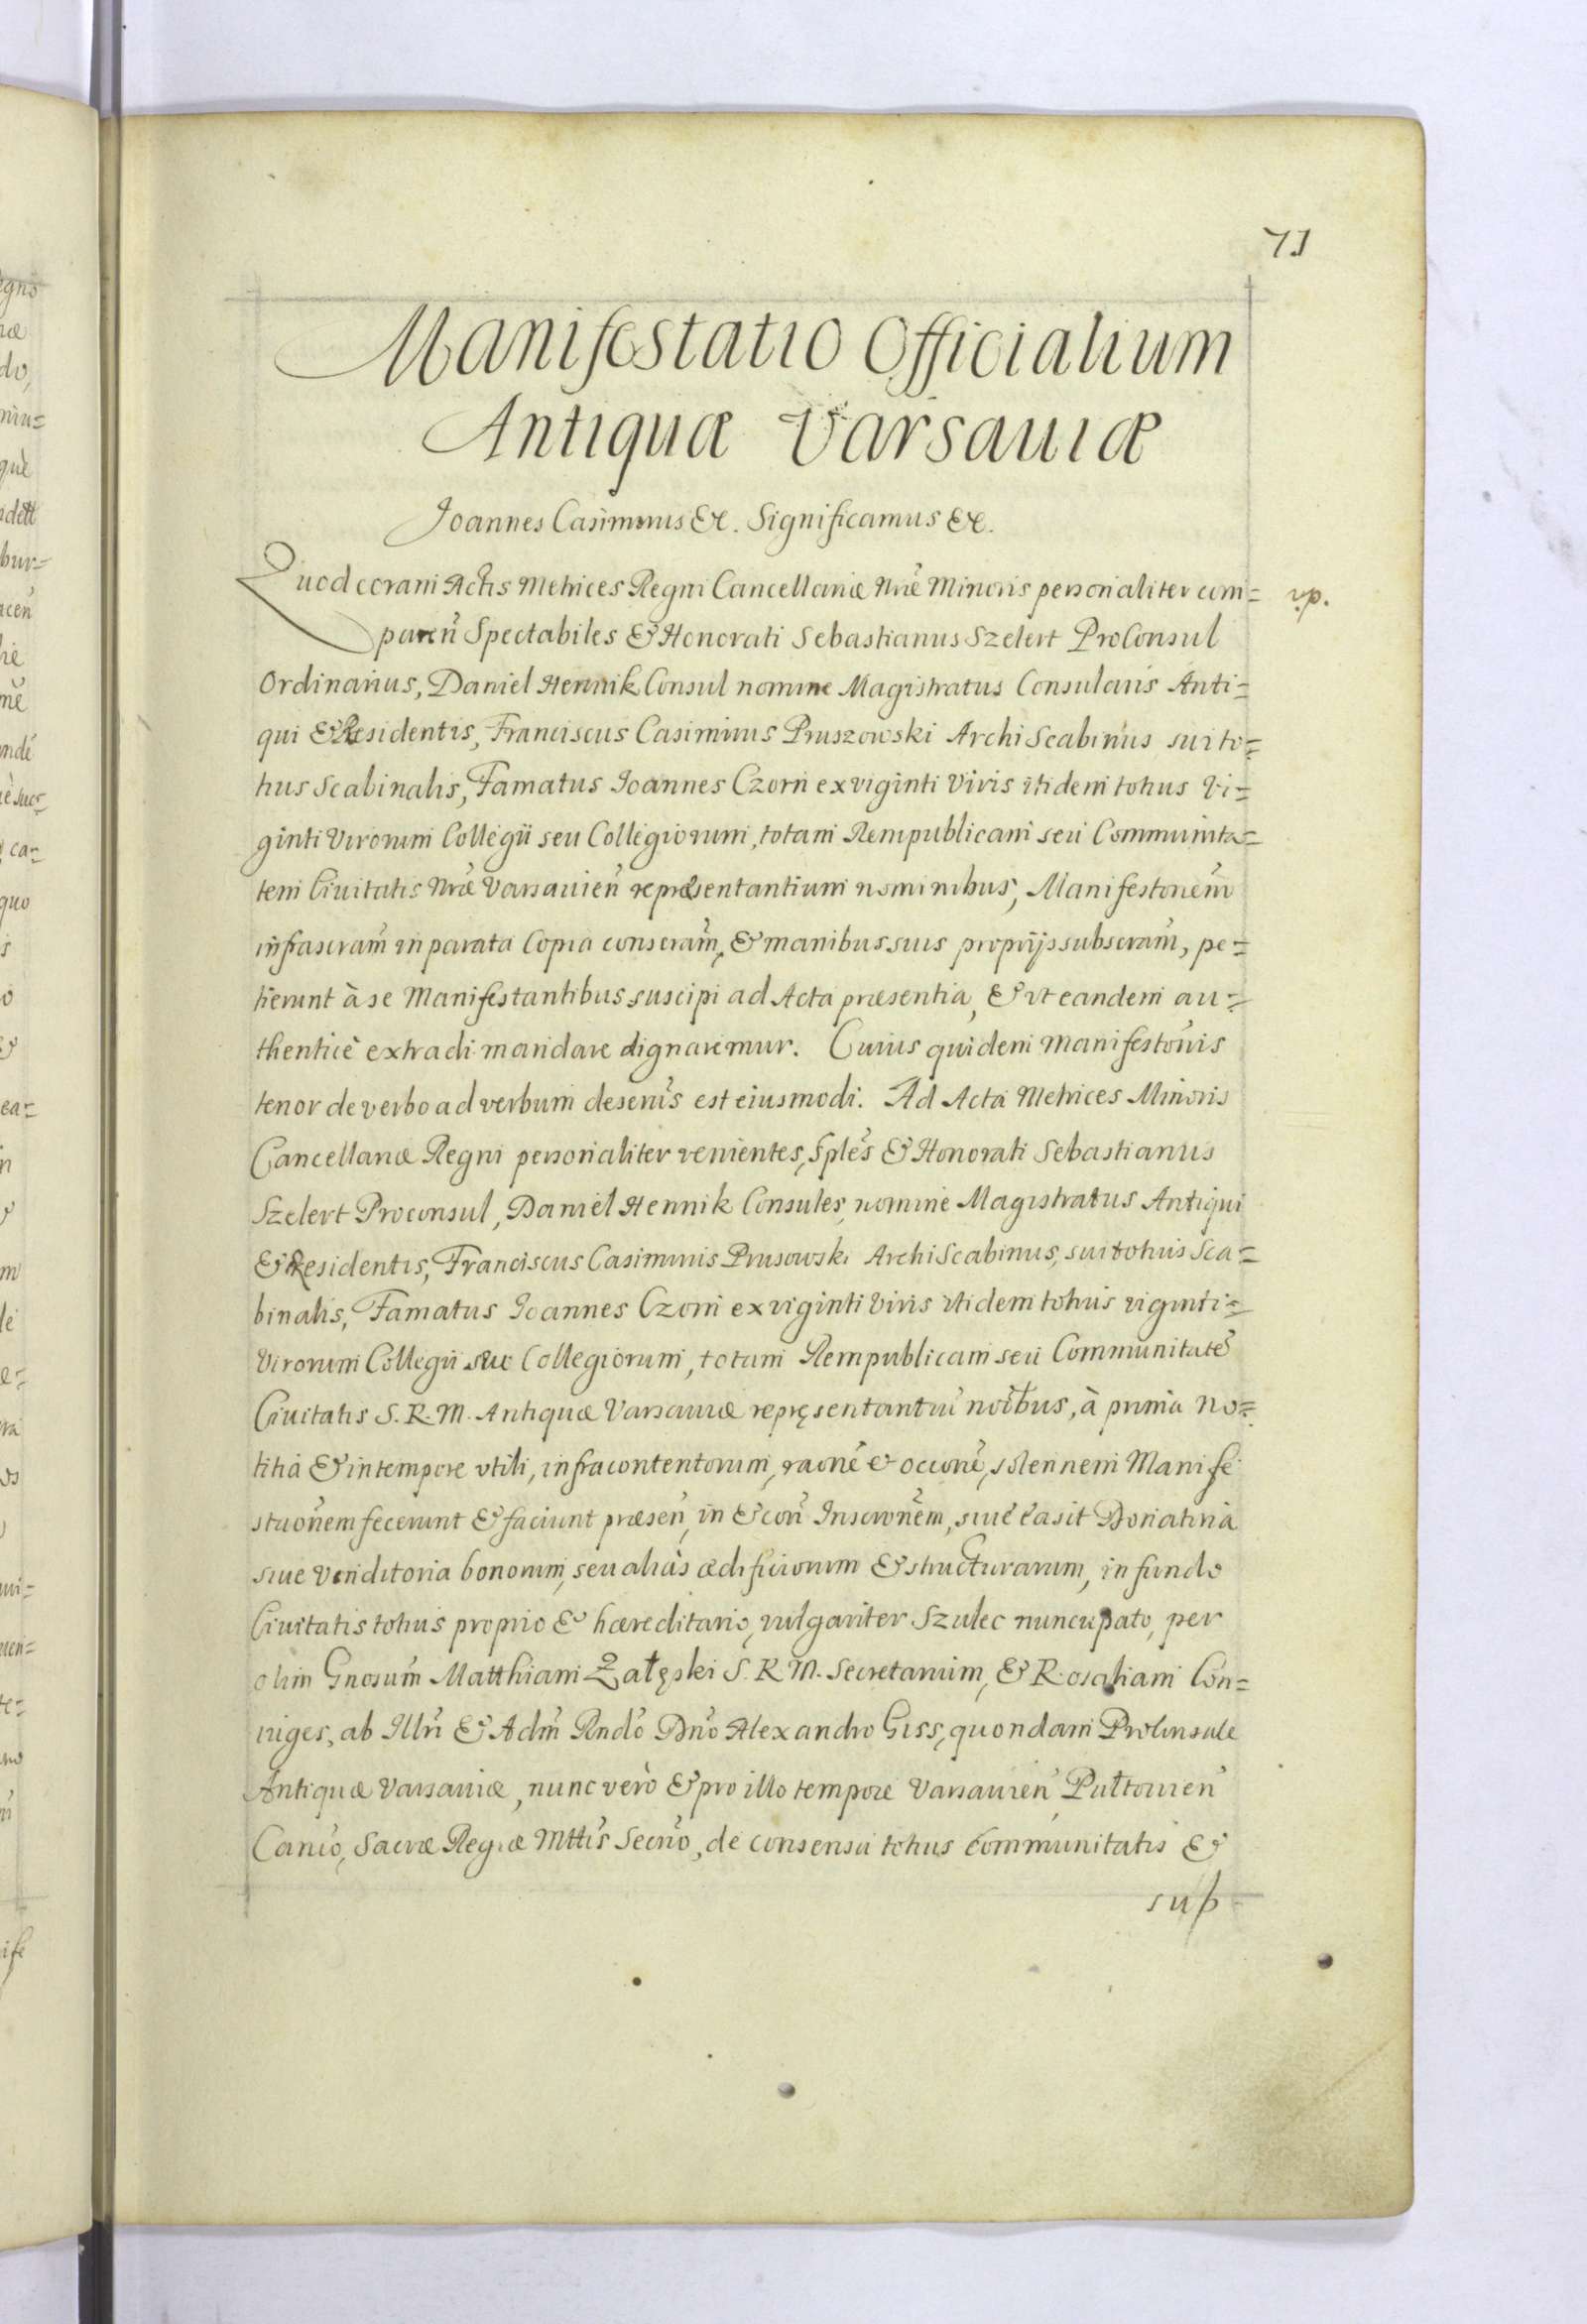 71
Manifestatio Officialium
Antiquæ Varsauiæ
Joannes Casimirus &c. Significamus &c.
Quod coram Actis Metrices Regni Cancellariæ Nræ Minoris personaliter com=
paren̄ Spectabiles & Honorati Sebastianus Szelert ProConsul
Ordinarius, Daniel Hennik Consul nomine Magistratus Consularis Anti=
qui & Residentis, Franciscus Casimirus Pruszowski Archi Scabinus sui to=
tius Scabinalis, Famatus Joannes Czorn ex viginti Viris itidem totius Vi=
ginti Virorum Collegii seu Collegiorum, totam Rempublicam seu Communita=
tem Ciuitatis Nræ Varsauien̄ repræsentantium nominibus, Manifestonem̄
infrascram̄ in parata Copia conscram̄, & manibus suis proprijs subscram̄, pe=
tierunt à se Manifestantibus suscipi ad Acta præsentia, & vt eandem au=
thenticè extradi mandare dignaremur. Cuius quidem Manifestonis
tenor de verbo ad verbum desenis̄ est eiusmodi. Ad Acta Metrices Minoris
Cancellariæ Regni personaliter venientes, Sples̄ & Honorati Sebastianus
Szelert Proconsul, Daniel Hennik Consules, nomine Magistratus Antiqui
& Residentis, Franciscus Casimirus Prusowski ArchiScabinus, sui totius Sca=
binalis, Famatus Joannes Czorn ex viginti Viris itidem totius viginti=
Virorum Collegii siue Collegiorum, totam Rempublicam seu Communitatē
Ciuitatis S. R. M. Antiquæ Varsauiæ repręsentantiū noībus, à prima no=
titiâ & in tempore vtili, infracontentorum, raōne & occōne, solennem Manife
staōnem fecerunt & faciunt præsen̄, in & con̄ Inscrōnem, siue ea sit Donatiua
siue Venditoria bonorum, seu aliàs ædificiorum & structurarum, in fundo
Ciuitatis totius proprio & hæreditario, vulgariter Szulec nuncupato, per
olim Gnosum̄ Matthiam Załęski S. R. M. Secretarium, & Rosaliam Con=
iuges, ab Illri & Adm̄ Rndo Dno Alexandro Giss, quondam ProConsule
Antiquæ Varsauiæ, nunc verò & pro illo tempore Varsauien̄ Pułtouien̄
Canco, Sacræ Regiæ Mttis Secrio, de consensu totius Communitatis &
sup